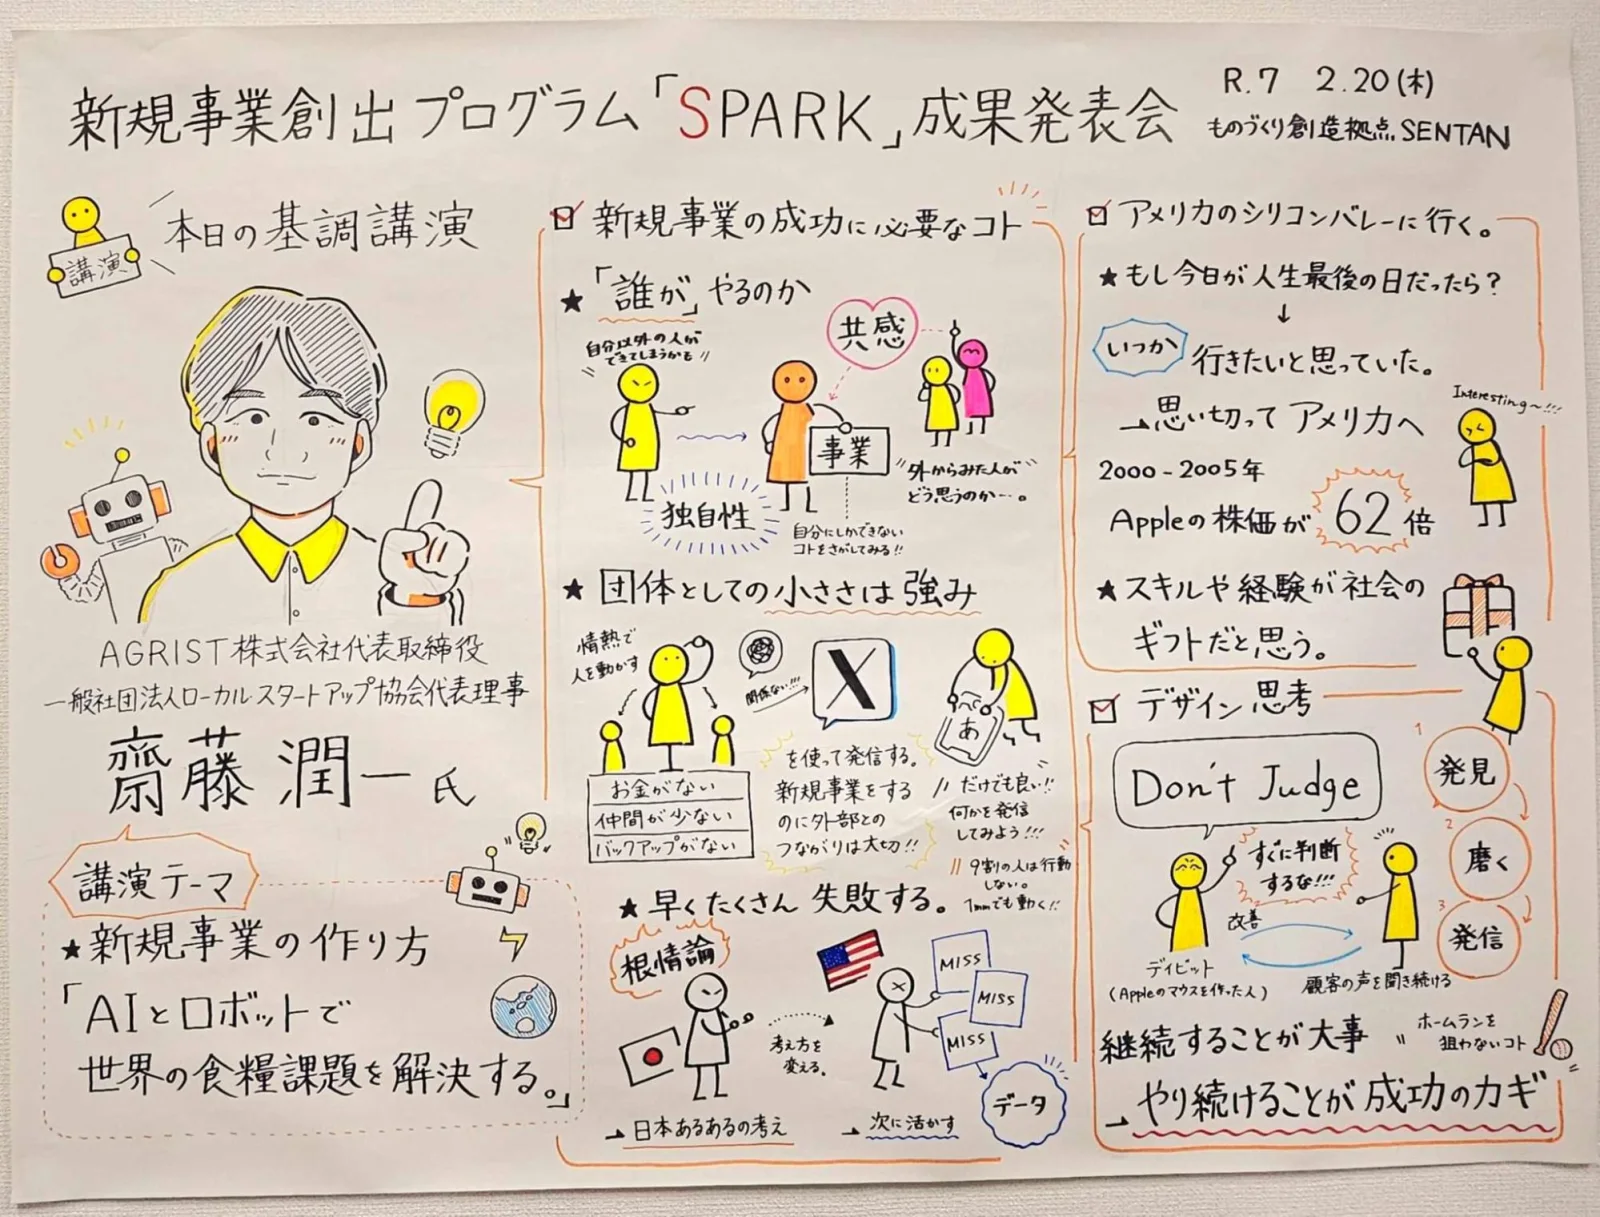 新規事業創出プログラム「SPARK」成果発表会
R.7 2.20(木)
ものづくり創造拠点SENTAN
講演
本日の基調講演
AGRIST株式会社代表取締役
一般社団法人ローカルスタートアップ協会代表理事
齋藤潤一氏
講演テーマ
★新規事業の作り方
「AIとロボットで
世界の食糧課題を解決する。」
新規事業の成功に必要なコト
★「誰が」やるのか
自分以外の人が
できてしまうかも
独自性
共感
事業
自分にしかできない
コトをさがしてみる!!
外からみた人が
どう思うのか…。
★団体としての小ささは強み
情熱で
人を動かす
お金がない
仲間が少ない
バックアップがない
関係ない!!!
X
を使って発信する。
新規事業をする
のに外部との
つながりは大切!!
あ
だけでも良い!!
何かを発信
してみよう!!!
9割の人は行動
しない。
1mmでも動く!!
★早くたくさん失敗する。
根情論
考え方を
変える。
→日本あるあるの考え
MISS
MISS
MISS
データ
→次に活かす
アメリカのシリコンバレーに行く。
★もし今日が人生最後の日だったら?
↓
いつか行きたいと思っていた。
→思い切ってアメリカへ
Interesting~!!!
2000-2005年
Appleの株価が62倍
★スキルや経験が社会の
ギフトだと思う。
デザイン思考
Don't Judge
すぐに判断
するな!!!
改善
デイビット
(Appleのマウスを作った人)
顧客の声を聞き続ける
1 発見
2 磨く
3 発信
継続することが大事
ホームランを
狙わないコト
→やり続けることが成功のカギ